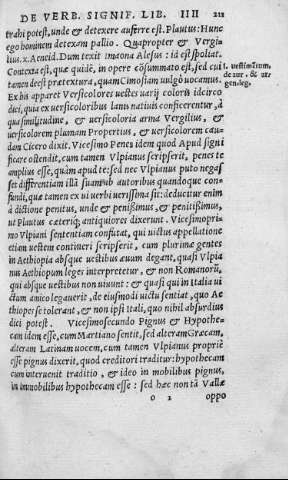 DE VERB. SIGNIF. LIB. IIII 211
trahi potest, unde & detexere auferre est. Plautus: Hunc
ego hominem detexam pallio. Quapropter & Vergi
lius. x. Aeneid. Dum texit imaona Alesus: id est spoliat.
Contexta est, quæ quidē, in opere cōsummato est, sed cui
tamen deest prætextura, quam Cimosiam uulgò uocamus.
Ex his apparet Versicolores uestes uarij coloris id circo
dici, quia ex uersicoloribus lanis natiuis conficerentur, à
qua similitudine, & uersicoloria arma Vergilius, &
uersicolorem plumam Propertius, & uersicolorem cau-
dam Cicero dixit. Vicesimo Penes idem quod Apud signi
ficare ostendit, cum tamen Vlpianus scripserit, penes te
amplius esse, quàm apud te: sed nec Vlpianus puto negas
set differentiam illā suamab autoribus quandoque con-
fundi, quæ tamen ex ui uerbi uerissima sit: deducitur enim
à dictione penitus, unde & penißimus, & penitißimus,
ut Plautus cæteriq; antiquiores dixerunt. Vicesimopri
mo Vlpiani sententiam confutat, qui uictus appellatione
etiam uestem contineri scripserit, cum plurimæ gentes
in Aethiopia absque uestibus æuum degant, quasi Vlpia
nus Aethiopum leges interpretetur, & non Romanorū,
qui absque uestibus non uiuunt: & quasi qui in Italia ui
ctum amico legauerit, de eiusmodi uictu sentiat, quo Ae
thiopes se tolerant, & non ipsi Itali, quo nihil absurdius
dici potest. Vicesimosecundo Pignus & Hypothe
cam idem esse, cum Martiano sentit, sed alteram Græcam,
alteram Latinam uocem, cum tamen Vlpianus propriè
esse pignus dixerit, quod creditori traditur: hypothecam
cum interuenit traditio, & ideo in mobilibus pignus,
in immobilibus hypothecam esse: sed hæc non tā Vallæ
o 2 oppo
1. uestimentorum,
de aur. & ar
gen. leg.